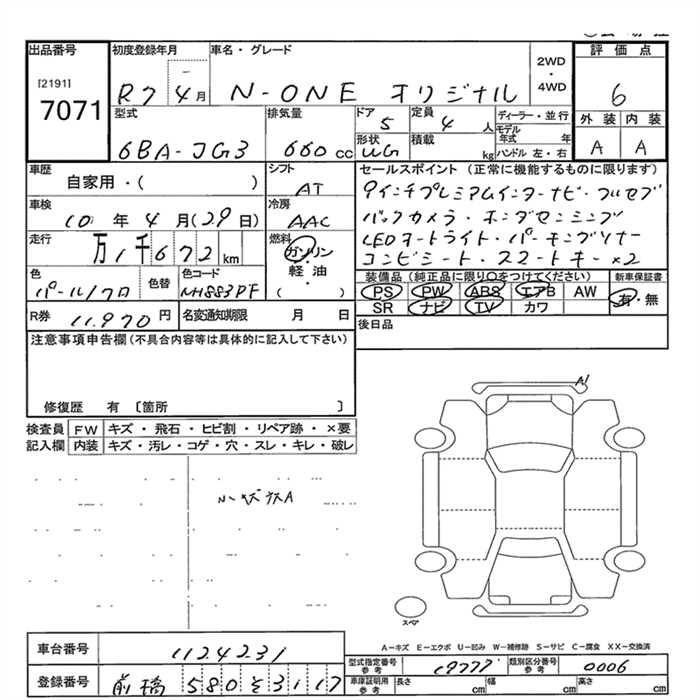 出品番号 初度登録年月 車名・グレード 評価点
[2191] 7071 R7 4月 N-ONE オリジナル 2WD・4WD 6
型式 排気量 ドア 定員 ディーラー・並行 外装 内装
6BA-JG3 660cc 5 4人 モデル年式 年 A A
形状 積載 ハンドル 左・右
UG kg
車歴 シフト セールスポイント(正常に機能するものに限ります)
自家用・( ) AT 9インチプレミアムインターナビ・フルセグ
車検 冷房 バックカメラ・ホンダセンシング
(10)年4月(29日) AAC LEDオートライト・パーキングソナー
走行 燃料 コンビシート・スマートキー×2
万1千672km ガソリン・軽油・( )
色 色替 色コード 装備品(純正品に限り○をつけてください) 新車保証書
パール/クロ NH883PF PS PW ABS エアB AW 有・無
SR ナビ TV カワ
R券 11,970円 名変通知期限 月 日 後日品
注意事項申告欄(不具合内容等は具体的に記入して下さい)
修復歴 有 〔箇所 〕
検査員 FW キズ・飛石・ヒビ割・リペア跡・×要
記入欄 内装 キズ・汚レ・コゲ・穴・スレ・キレ・破レ
A1
スペア
A-キズ E-エクボ U-凹み W-補修跡 S-サビ C-腐食 XX-交換済
車台番号 1124231 型式指定番号 参考 19777 類別区分番号 参考 0006
登録番号 前橋 580 そ 3117 車庫証明用 参考 長さ cm 幅 cm 高さ cm